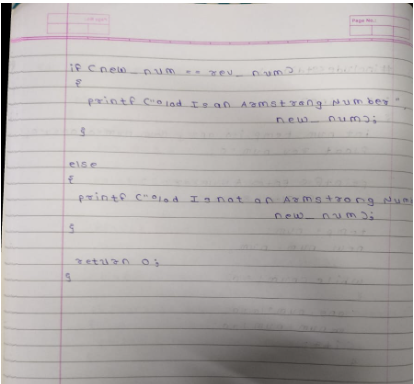 Page No.:
if (new_num == rev_num)
{
printf ("%d Is an Armstrong Number",
new_num);
}
else
{
printf ("%d Is not an Armstrong Num
new_num);
}
return 0;
}